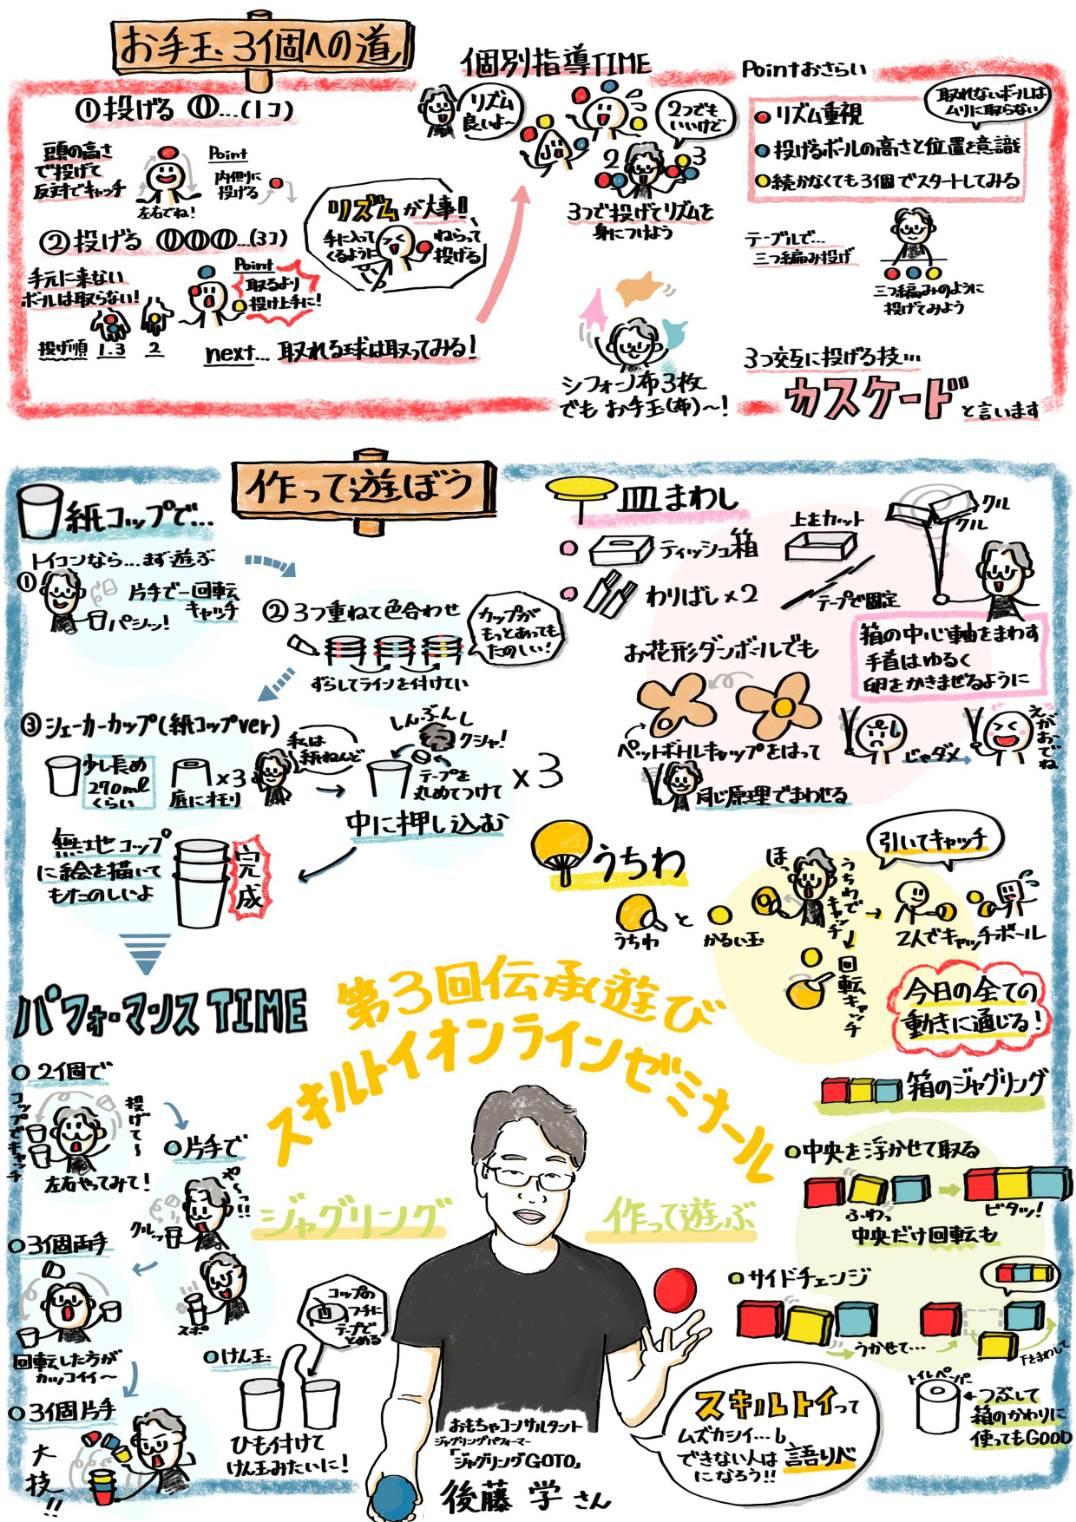 お手玉 3個への道
①投げる ①…(1コ)
頭の高さ
で投げて
反対でキャッチ
左右でね！
Point
内側に
投げる
②投げる ①①①…(3コ)
手元に来ない
ボールは取らない！
投げ順 1.3 2
Point
取るより
投げ上手に！
next… 取れる球は取ってみる！
リズムが大事!!
手に入って
くるように
ねらって
投げる
個別指導TIME
リズム
良いよ〜
2つでも
いいけど
2 3
3つで投げてリズムを
身につけよう
シフォン布3枚
でも お手玉(布)〜！
Pointおさらい
取れないボールは
ムリに取らない
リズム重視
投げるボールの高さと位置を意識
続かなくても3個でスタートしてみる
テーブルで…
三つ編み投げ
三つ編みのように
投げてみよう
3つ交互に投げる技…
カスケード と言います
作って遊ぼう
紙コップで…
トイコンなら…まず遊ぶ
①
片手で一回転
キャッチ
パシッ！
②3つ重ねて色合わせ
カップが
もっとあっても
たのしい！
ずらしてラインを付けてい
③シェーカーカップ(紙コップver)
少し長め
270ml
くらい
×3
底にオモリ
私は
紙ねんど
しんぶんし
クシャ！
テープを
丸めてつけて
×3
中に押し込む
無地コップ
に絵を描いて
もたのしいよ
完成
皿まわし
ティッシュ箱
上をカット
わりばし×2
テープで固定
クル
クル
箱の中心軸をまわす
手首はゆるく
卵をかきまぜるように
お花形ダンボールでも
ペットボトルキャップをはって
同じ原理でまわせる
じゃダメ
えがおでね
うちわ
うちわ と かるい玉
ほっ
うちわで
キャッチ
回転キャッチ
引いてキャッチ
2人でキャッチボール
今日の全ての
動きに通じる！
パフォーマンスTIME
2個で
コップでキャッチ
投げて〜
左右やってみて！
片手で
や〜っ!!
クルッ
スポ
3個両手
回転した方が
カッコイイ〜
3個片手
大技!!
けん玉
コップの
フチに
テープで
とめる
ひも付けて
けん玉みたいに！
第3回伝承遊び
スキルトイオンラインゼミナール
ジャグリング
作って遊ぶ
おもちゃコンサルタント
ジャグリングパフォーマー
「ジャグリングGOTO」
後藤 学さん
スキルトイって
ムズカシイ…
できない人は語りべ
になろう!!
箱のジャグリング
中央を浮かせて取る
ふわっ
ピタッ！
中央だけ回転も
サイドチェンジ
うかせて…
下をまわして
トイレペーパー
つぶして
箱のかわりに
使ってもGOOD